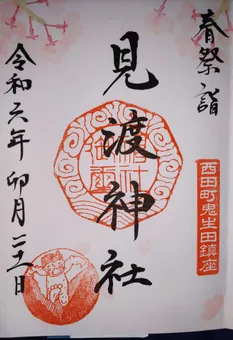 春祭詣
西田町鬼生田鎮座
見渡神社
令和六年卯月二十一日